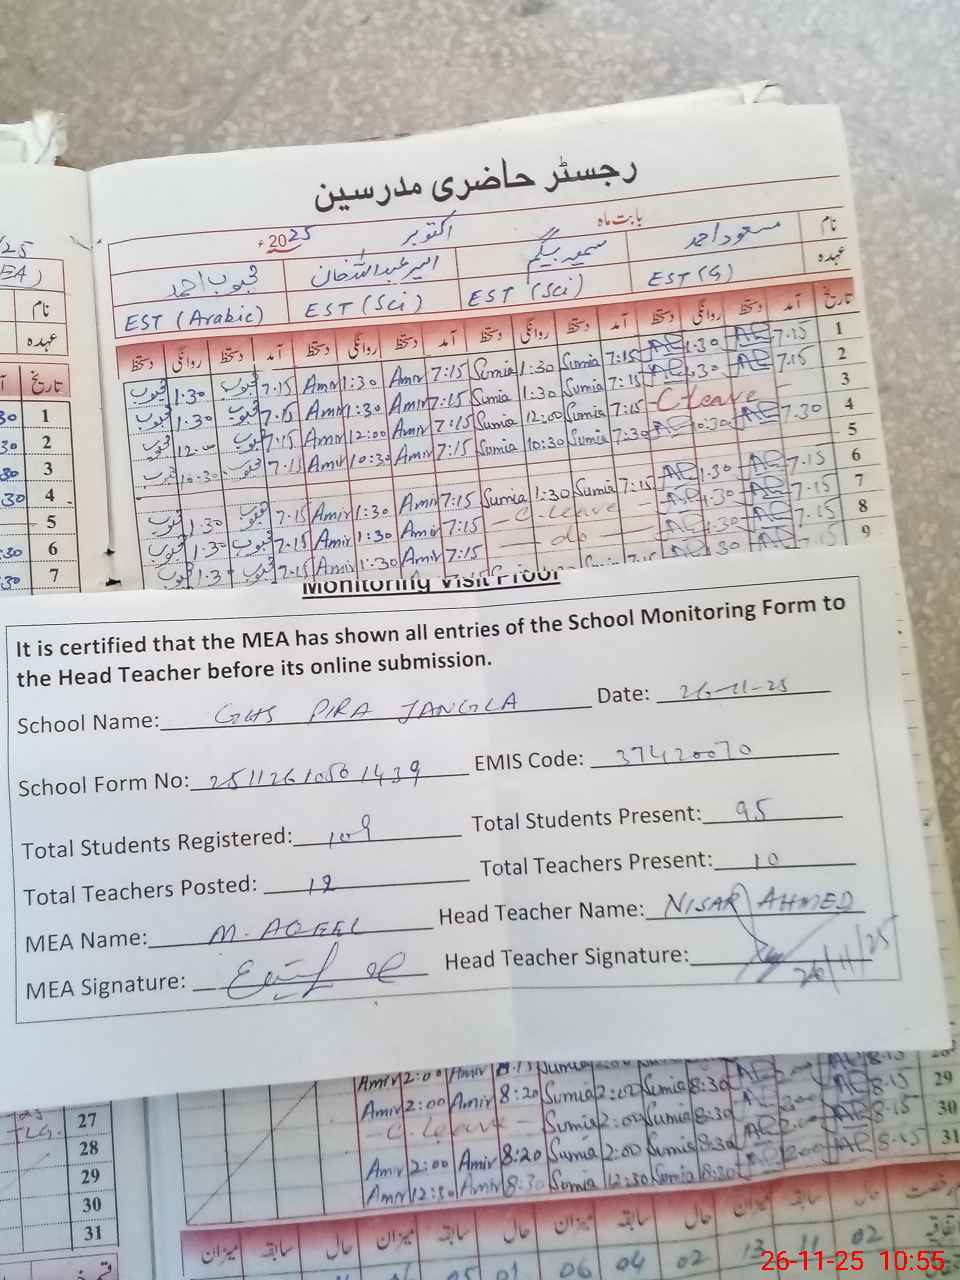 رجسٹر حاضری مدرسین
بابت ماہ اکتوبر 2025ء
نام مسعود احمد سمیہ بیگم امیر عبداللہ خان محبوب احمد
عہدہ EST (G) EST (Sci) EST (Sci) EST (Arabic)
تاریخ آمد دستخط روانگی دستخط آمد دستخط روانگی دستخط آمد دستخط روانگی دستخط آمد دستخط روانگی دستخط
1 7.15 AR 1.30 AR 7:15 Sumia 1:30 Sumia 7:15 Amir 1:30 Amir 7.15 محبوب 1.30 محبوب
2 7.15 AR 1.30 AR 7:15 Sumia 1:30 Sumia 7:15 Amir 1:30 Amir 7.15 محبوب 1.30 محبوب
3 - C leave - 7:15 Sumia 12:00 Sumia 7:15 Amir 12:00 Amir 7.15 محبوب 12.00 محبوب
4 7.30 AR 10:30 AR 7:30 Sumia 10:30 Sumia 7:15 Amir 10:30 Amir 7.15 محبوب 10.30 محبوب
5
6 7.15 AR 1.30 AR 7:15 Sumia 1:30 Sumia 7:15 Amir 1:30 Amir 7.15 محبوب 1.30 محبوب
7 7.15 AR 1.30 AR - C. leave - 7:15 Amir 1:30 Amir 7.15 محبوب 1.30 محبوب
8 7.15 AR 1.30 AR - do - 7:15 Amir 1:30 Amir 7.15 محبوب 1.3 محبوب
9 7.15 AR 1.30 AR
/25
EA)
نام
عہدہ
تاریخ
1
2
3
4
5
6
7
Monitoring Visit Proof
It is certified that the MEA has shown all entries of the School Monitoring Form to
the Head Teacher before its online submission.
School Name: GHS PIRA JANGLA Date: 26-11-25
School Form No: 25112610501439 EMIS Code: 37420070
Total Students Registered: 109 Total Students Present: 95
Total Teachers Posted: 12 Total Teachers Present: 10
MEA Name: M. AQEEL Head Teacher Name: NISAR AHMED
MEA Signature: Head Teacher Signature: 26/11/25
Amir 2:00 Amir
29 8.15 AR 2.00 8:30 Sumia 2:00 Sumia 8:20 Amir 2:00 Amir
30 8.15 AR 2.00 8:30 Sumia 2:00 Sumia - C. Leave -
31 8.15 AR 2.00 AR 8:30 Sumia 2:00 Sumia 8:20 Amir 2:00 Amir
8:30 Sumia 12:30 Sumia 8:30 Amir 12:30 Amir
27
28
29
30
31
حال سابقہ میزان حال سابقہ میزان حال سابقہ میزان
02 11 13 02 04 06 01 05
26-11-25 10:55